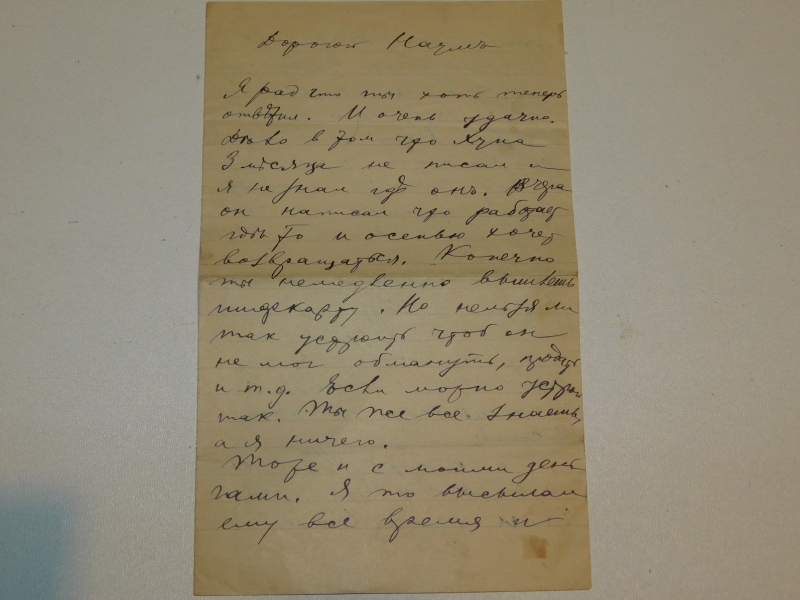 Дорогой Наумъ
Я рад что ты хоть теперь
ответил. И очень удачно.
Дѣло в том что Яуна
3 мѣсяца не писал и
я не знал гдѣ онъ. Вчера
он написал что работает
гдѣ то и осенью хочет
возвращаться. Конечно
ты немедленно вышлешь
шифскарту. Но нельзя ли
так устроить чтоб он
не мог обмануть, продать
и т.д. Если можно устрой
так. Ты же все знаешь,
а я ничего.
Тоже и с моими день
гами. Я то высылал
ему всё время и